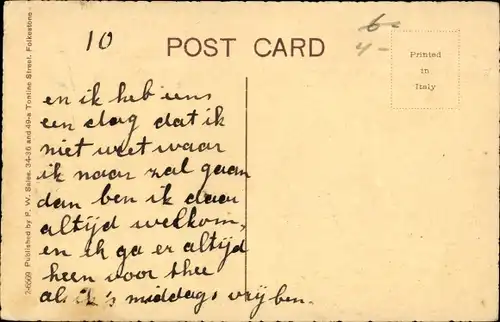 10
6-
4-
POST CARD
Printed
in
Italy
en ik heb eens
een dag dat ik
niet weet waar
ik naar zal gaan
dan ben ik daar
altijd welkom,
en ik ga er altijd
heen voor thee
als ik 's middags vrij ben.
26669 Published by F. W. Salse, 34-36 and 49-a Tontine Street, Folkestone